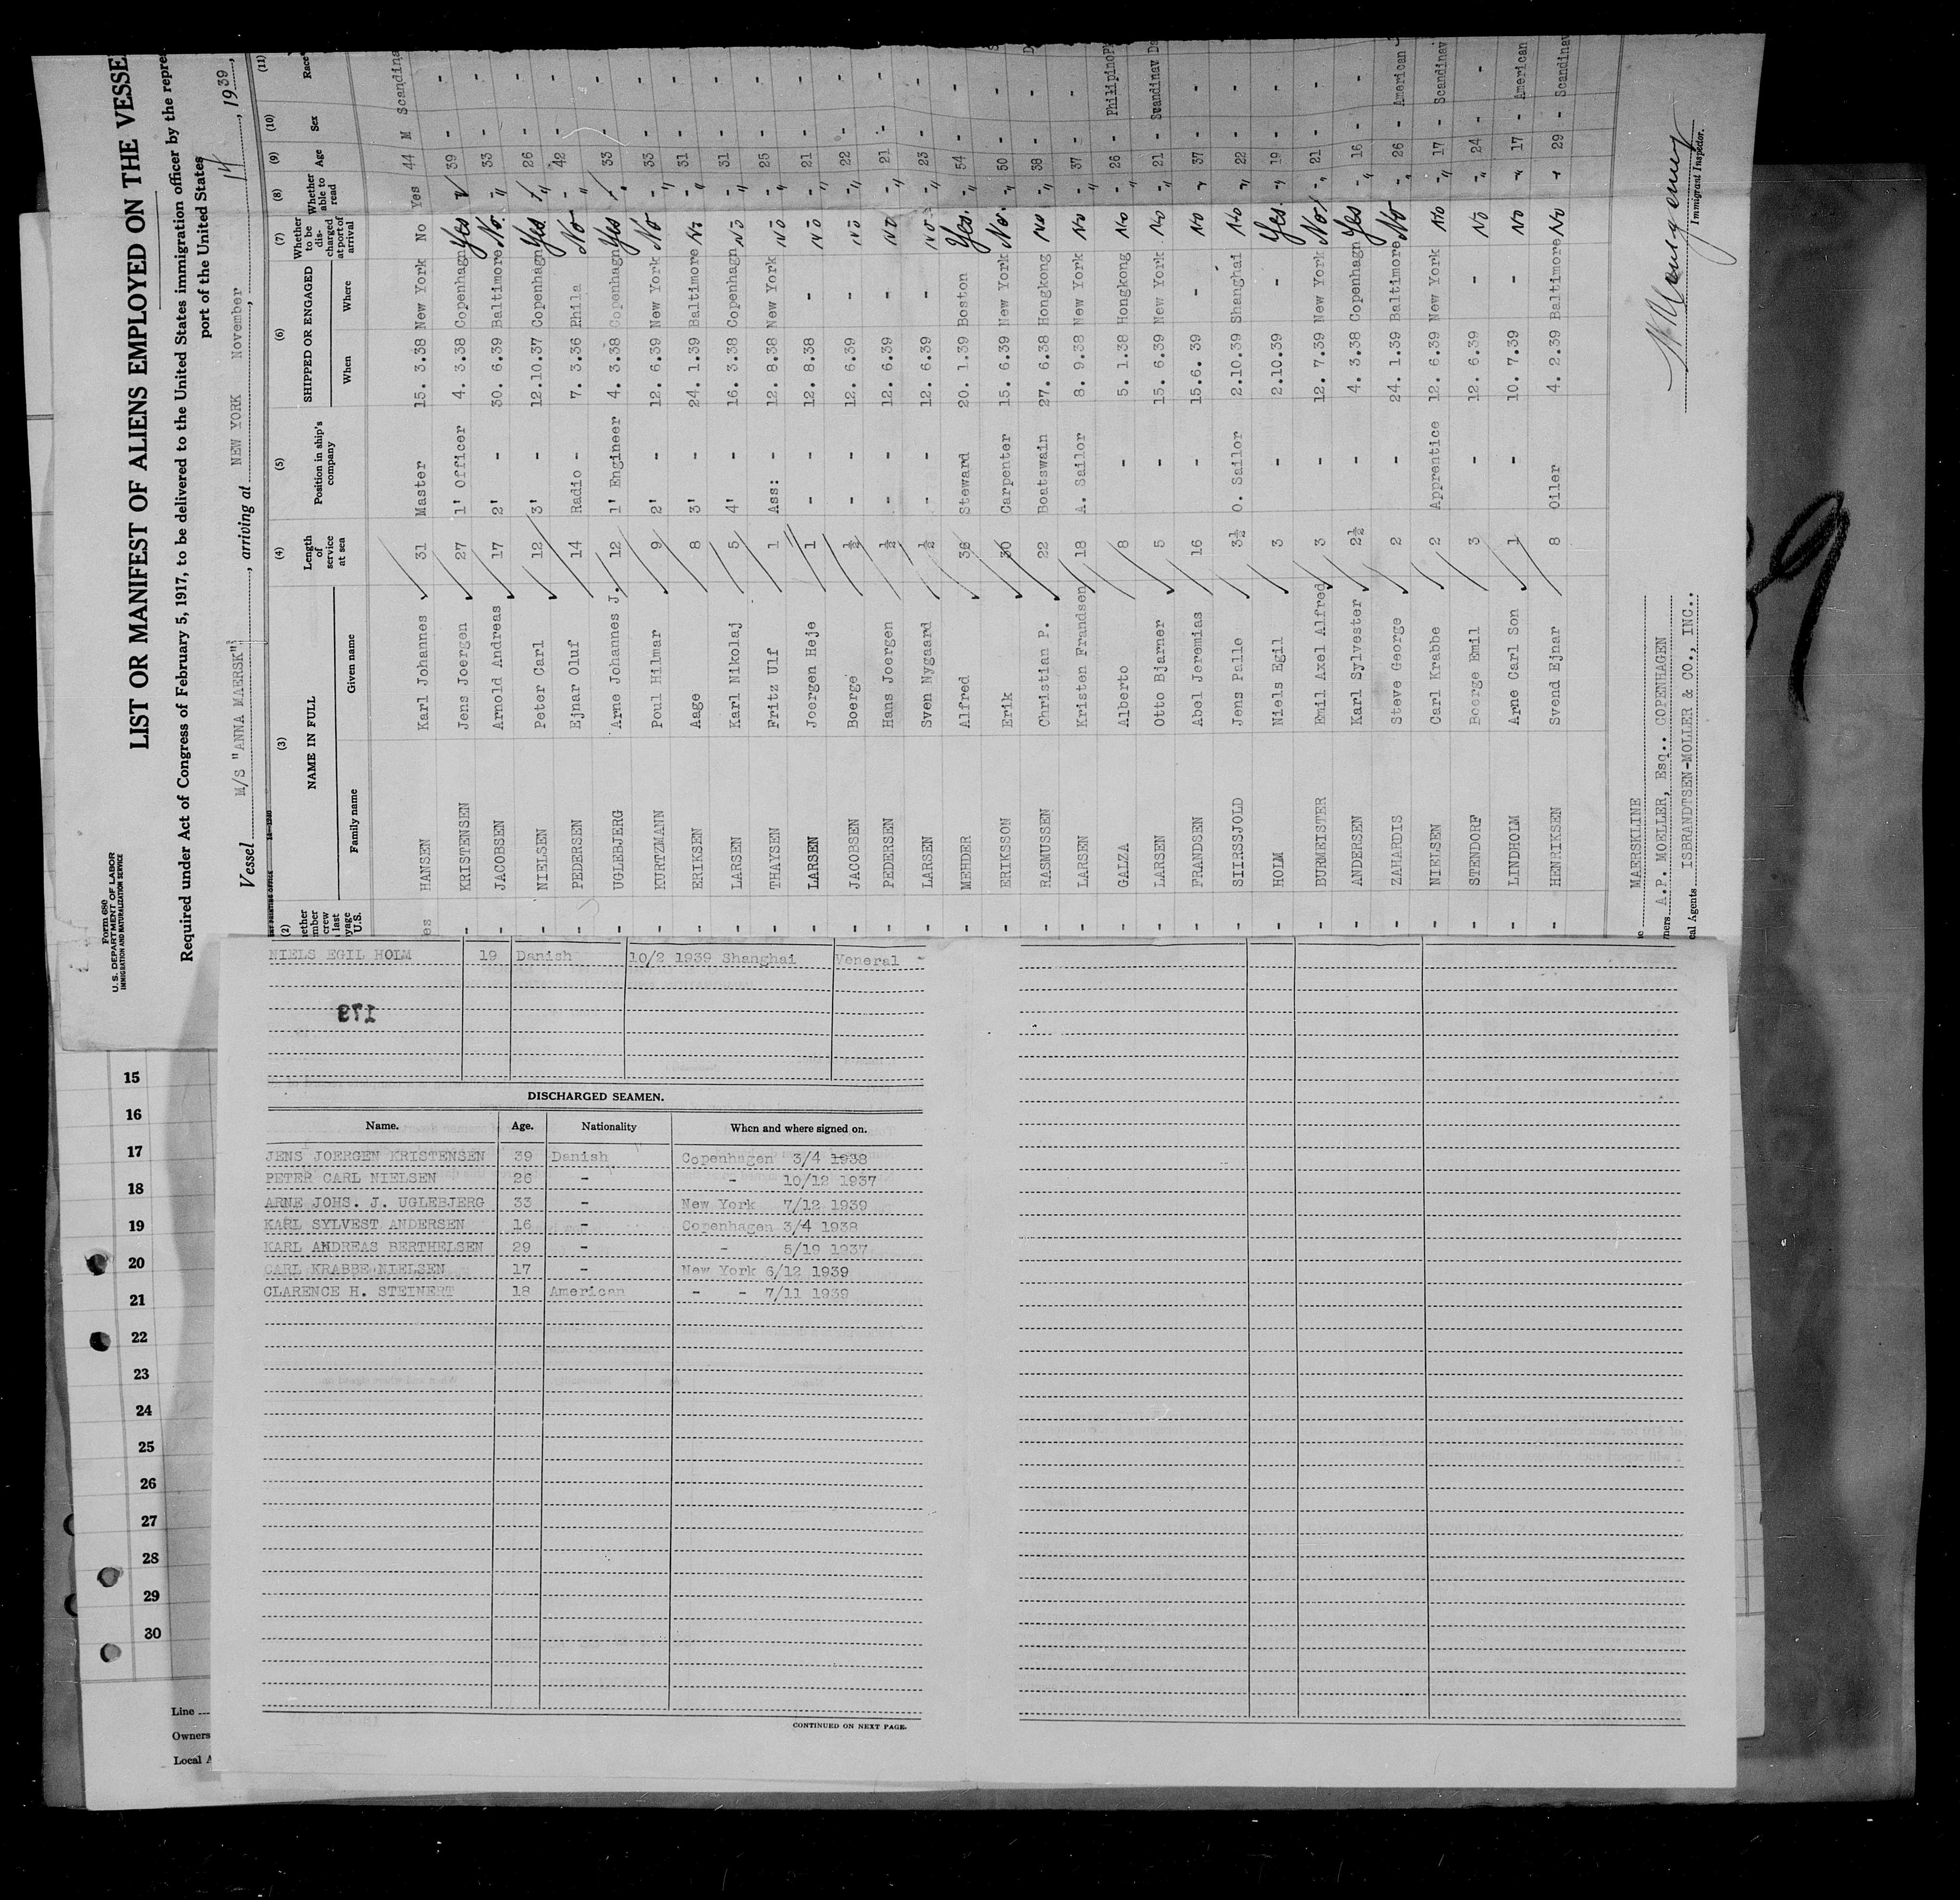 Form 680
U. S. DEPARTMENT OF LABOR
IMMIGRATION AND NATURALIZATION SERVICE
LIST OR MANIFEST OF ALIENS EMPLOYED ON THE VESSE
Required under Act of Congress of February 5, 1917, to be delivered to the United States immigration officer by the repre
port of the United States
Vessel M/S "ANNA MAERSK", arriving at NEW YORK November 14, 1939,
(2) (3) (4) (5) (6) (7) (8) (9) (10) (11)
ether mber crew last yage U.S. NAME IN FULL Family name Given name Length of service at sea Position in ship's company SHIPPED OR ENGAGED When Where Whether to be discharged at port of arrival Whether able to read Age Sex Race
es HANSEN Karl Johannes 31 Master 15. 3.38 New York No Yes 44 M Scandina
- KRISTENSEN Jens Joergen 27 1' Officer 4. 3.38 Copenhagn Yes " 39 - -
- JACOBSEN Arnold Andreas 17 2' - 30. 6.39 Baltimore No. - " 33 - -
- NIELSEN Peter Carl 12 3' - 12.10.37 Copenhagn Yes " 26 - -
- PEDERSEN Ejnar Oluf 14 Radio - 7. 3.36 Phila No - " 42 - -
- UGLEBJERG Arne Johannes J. 12 1' Engineer 4. 3.38 Copenhagn Yes 33 - -
- KURTZMANN Poul Hilmar 9 2' - 12. 6.39 New York No - " 33 - -
- ERIKSEN Aage 8 3' - 24. 1.39 Baltimore No - " 31 - -
- LARSEN Karl Nikolaj 5 4' - 16. 3.38 Copenhagn No - " 31 - -
- THAYSEN Fritz Ulf 1 Ass: - 12. 8.38 New York No - " 25 - -
- LARSEN Joergen Heje 1 - - 12. 8.38 - No - " 21 - -
- JACOBSEN Boerge ½ - - 12. 6.39 - No - " 22 - -
- PEDERSEN Hans Joergen ½ - - 12. 6.39 - No - " 21 - -
- LARSEN Sven Nygaard ½ - - 12. 6.39 - No - " 23 - -
- MEHDER Alfred 36 Steward 20. 1.39 Boston Yes. - " 54 - -
- ERIKSSON Erik 30 Carpenter 15. 6.39 New York No. - " 50 - -
- RASMUSSEN Christian P. 22 Boatswain 27. 6.38 Hongkong No - " 38 - -
- LARSEN Kristen Frandsen 18 A. Sailor 8. 9.38 New York No - " 37 - -
- GALZA Alberto 8 - 5. 1.38 Hongkong No - " 26 - Philipino
- LARSEN Otto Bjarner 5 - 15. 6.39 New York No - " 21 - Scandinav Da
- FRANDSEN Abel Jeremias 16 - 15.6. 39 - No - " 37 - -
- SIIRSSJOLD Jens Palle 3½ O. Sailor 2.10.39 Shanghai No - " 22 - -
- HOLM Niels Egil 3 - 2.10.39 - Yes. - " 19 - -
- BURMEISTER Emil Axel Alfred 3 - 12. 7.39 New York No - " 21 - -
- ANDERSEN Karl Sylvester 2½ - 4. 3.38 Copenhagn Yes - " 16 - -
- ZAHARDIS Steve George 2 - 24. 1.39 Baltimore No - " 26 - American
- NIELSEN Carl Krabbe 2 Apprentice 12. 6.39 New York No - " 17 - Scandinav
- STENDORF Boerge Emil 3 - 12. 6.39 - No - " 24 - -
- LINDHOLM Arne Carl Son 1 - 10. 7.39 - No - " 17 - American
- HENRIKSEN Svend Ejnar 8 Oiler 4. 2.39 Baltimore No - " 29 - Scandinav
MAERSKLINE
ners A.P. MOELLER, Esq.. COPENHAGEN
cal Agents ISBRANDTSEN-MOLLER & CO., INC..
Immigrant Inspector.
NIELS EGIL HOLM 19 Danish 10/2 1939 Shanghai Veneral -
173
DISCHARGED SEAMEN.
Name. Age. Nationality When and where signed on.
JENS JOERGEN KRISTENSEN 39 Danish Copenhagen 3/4 1938
PETER CARL NIELSEN 26 - - 10/12 1937
ARNE JOHS. J. UGLEBJERG 33 - New York 7/12 1939
KARL SYLVEST ANDERSEN 16 - Copenhagen 3/4 1938
KARL ANDREAS BERTHELSEN 29 - - 5/19 1937
CARL KRABBE NIELSEN 17 - New York 6/12 1939
CLARENCE H. STEINERT 18 American - - 7/11 1939
CONTINUED ON NEXT PAGE.
15
16
17
18
19
20
21
22
23
24
25
26
27
28
29
30
Line
Owners
Local A